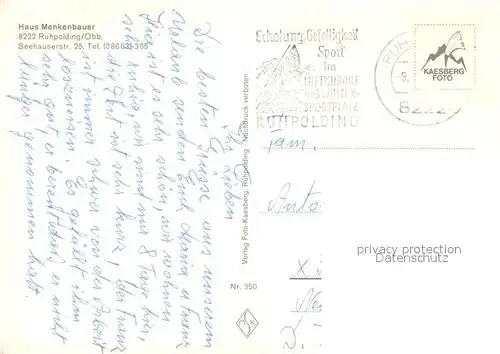 Haus Menkenbauer
8222 Ruhpolding/Obb.
Seehauserstr. 25, Tel. (08663) 305
Ihr Lieben
Die besten Grüße aus unserem
Urlaub senden Euch Maria u Franz
Hier ist es sehr schön, wir wohnen
sehr ruhig, wir sind nur 8 Tage hier,
die Zeit ist sehr kurz, der Franz
ist immer schwer von der Arbeit
loszureisen. Es gefällt ihm
sehr gut, er bereut daß er nicht
länger genommen hat.
Verlag Foto Kaesberg, Ruhpolding - Nachdruck verboten
Nr. 350
Erholung Geselligkeit
Sport
im
LUFTKURORT
und WINTER-
SPORTPLATZ
RUHPOLDING
KAESBERG
FOTO
RUH
8222
Fam.
Anto
privacy protection
Datenschutz